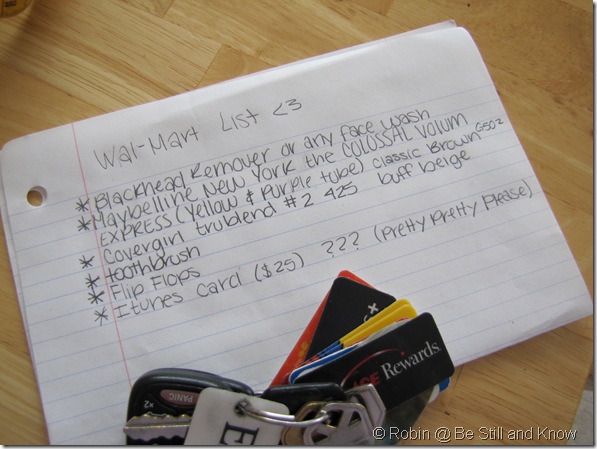 Wal-Mart List <3
* Blackhead Remover or any face wash
* Maybelline New York the COLOSSAL VOLUM
EXPRESS (Yellow & Purple tube) Classic Brown G502
* Covergirl trublend #2 425 buff beige
* toothbrush
* Flip Flops
* Itunes card ($25) ??? (Pretty Pretty Please)
Rewards
PANIC
x2
E
© Robin @ Be Still and Know